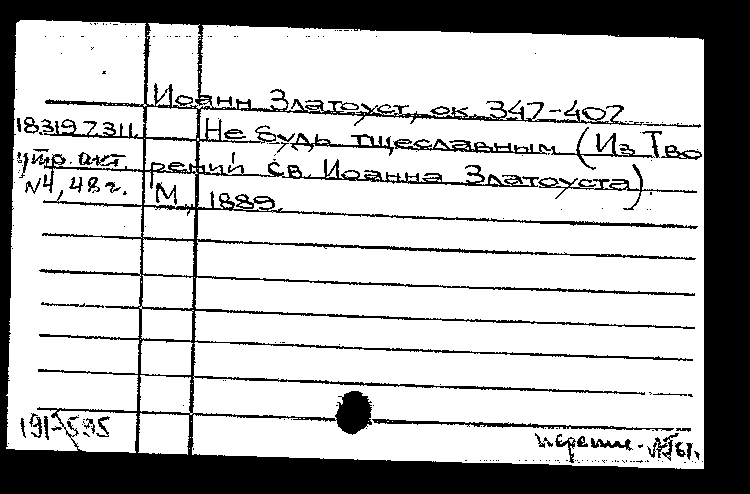 Иоанн Златоуст, ок. 347-407
18.319.7.311. Не будь тщеславным (Из Тво
утр. акт. рений св. Иоанна Златоуста).
№4, 48 г. М., 1889.